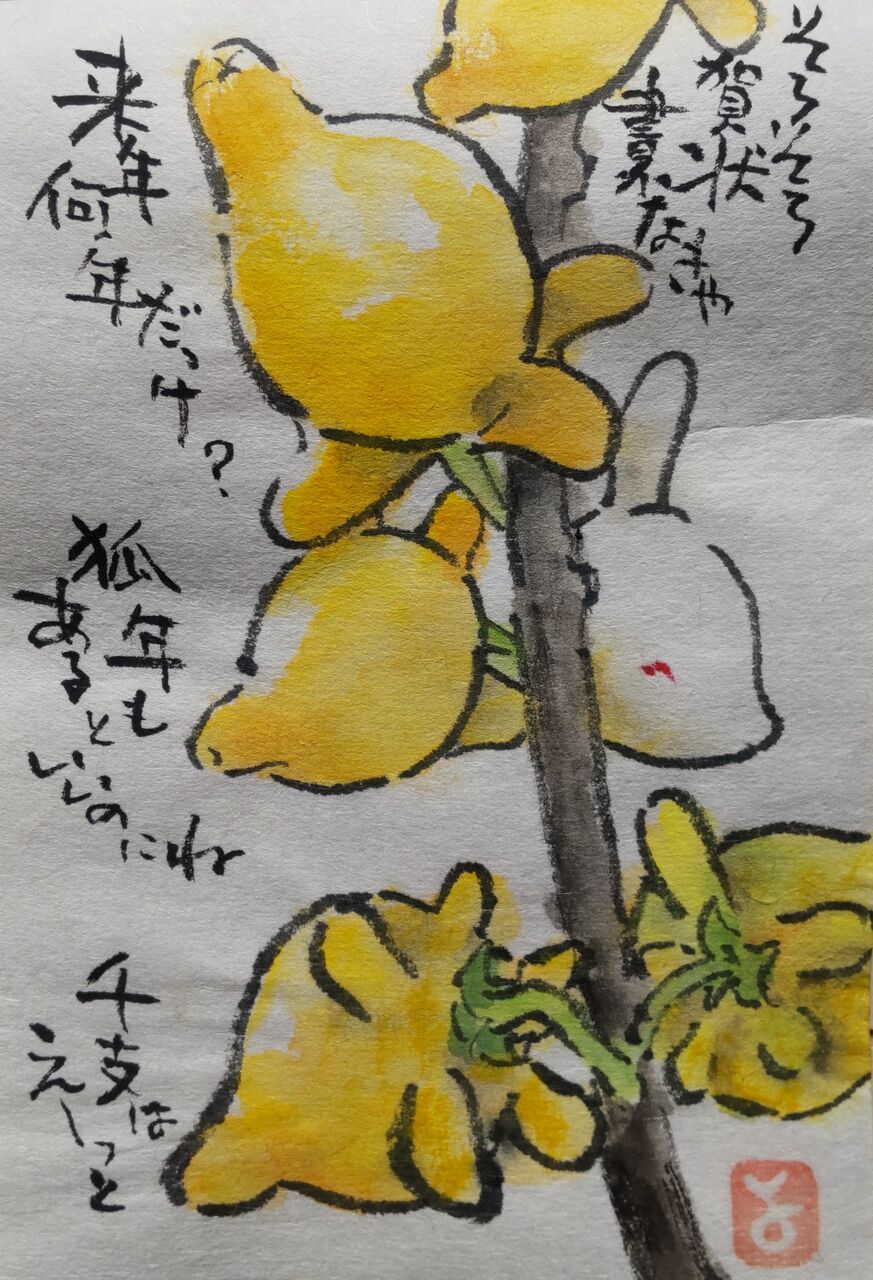 そろそろ
賀状
書かなきゃ
来年
何年
だっけ
？
狐年も
あると
いいのにね
干支は
えーっと
と